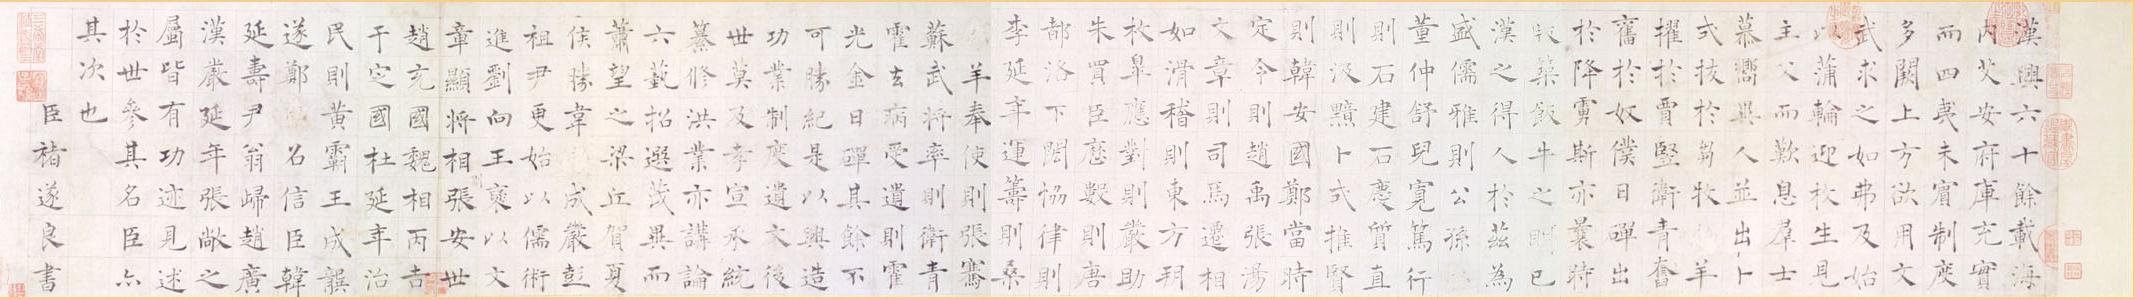 漢興六十餘載海
內艾安府庫充實
而四夷未賓制度
多闕上方欲用文
武求之如弗及始
以蒲輪迎枚生見
主父而歎息羣士
慕嚮異人並出卜
式拔於芻牧羊
擢於賈豎衛青奮
舊於奴僕日磾出
於降虜斯亦曩時
版築飯牛之明已
漢之得人於茲為
盛儒雅則公孫
董仲舒兒寬篤行
則石建石慶質直
則汲黯卜式推賢
則韓安國鄭當時
定令則趙禹張湯
文章則司馬遷相
如滑稽則東方朔
枚皋應對則嚴助
朱買臣歷數則唐
都洛下閎恊律則
李延年運籌則桑
羊奉使則張騫
蘇武將率則衛青
霍去病受遺則霍
光金日磾其餘不
可勝紀是以興造
功業制度遺文後
世莫及孝宣承統
纂修洪業亦講論
六藝招選茂異而
蕭望之梁丘賀夏
侯勝韋成嚴彭
祖尹更始以儒術
進劉向王褒以文
章顯將相張安世
趙充國魏相丙吉
于定國杜延年治
民則黃霸王成龔
遂鄭名信臣韓
延壽尹翁歸趙廣
漢嚴延年張敞之
屬皆有功迹見述
於世參其名臣亦
其次也
臣褚遂良書